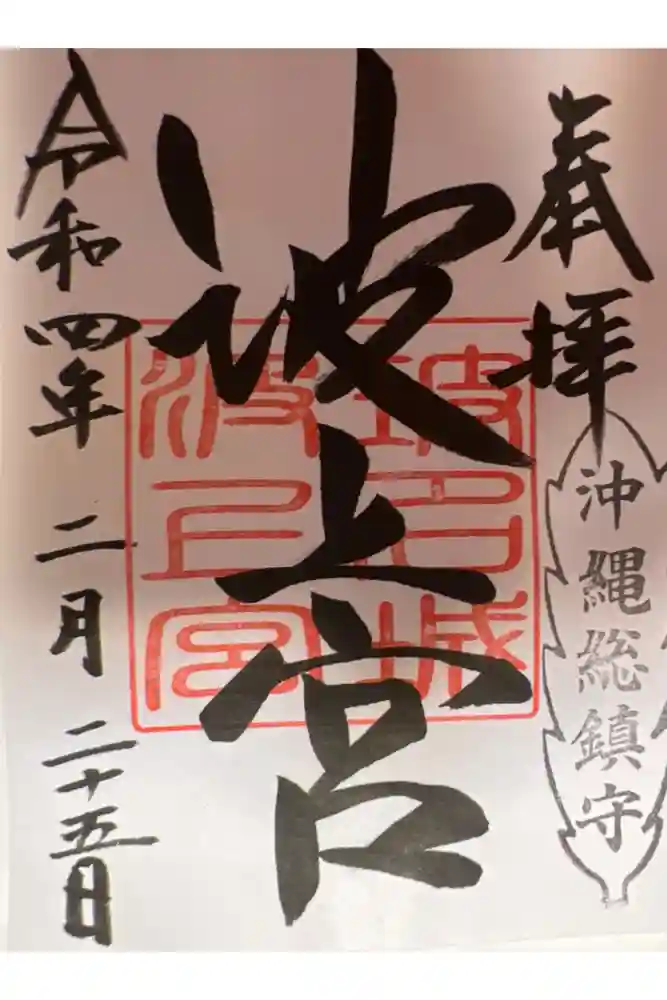 奉拝
沖縄総鎮守
波上宮
坡名城
波上宮
令和四年二月二十五日